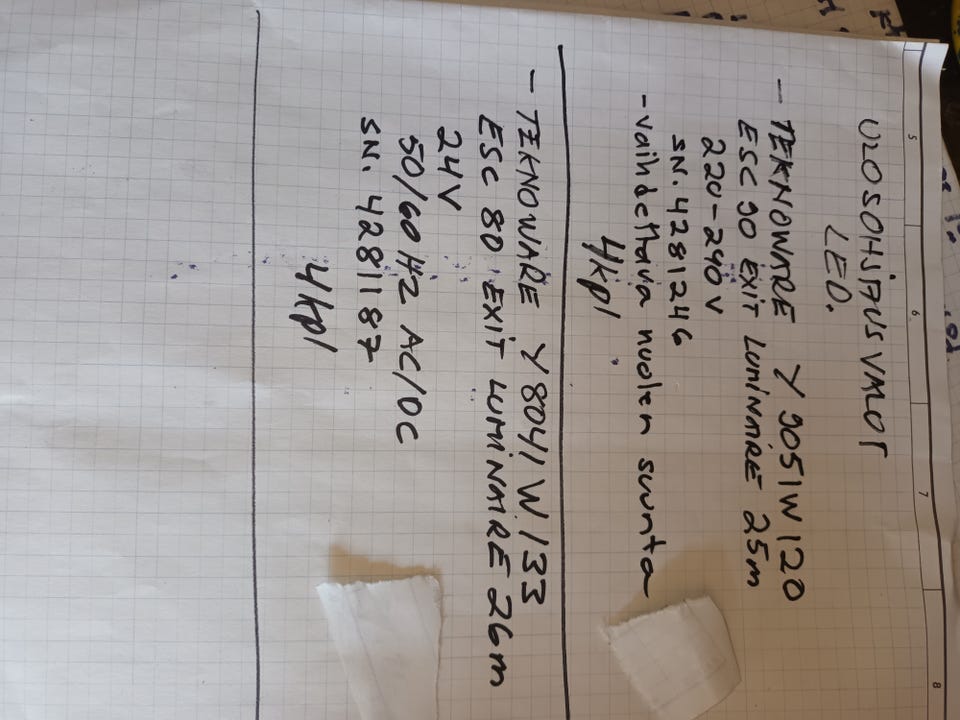 ULOSOHJAUSVALOT
LED.
- TEKNOWARE Y9051W120
ESC 90 EXIT LUMINAIRE 25m
220-240V
SN. 4281246
- vaihdettava nuolen suunta
4kpl
- TEKNOWARE Y8041W133
ESC 80 EXIT LUMINAIRE 26m
24V
50/60 HZ AC/DC
SN. 4281187
4kpl
5
6
7
8